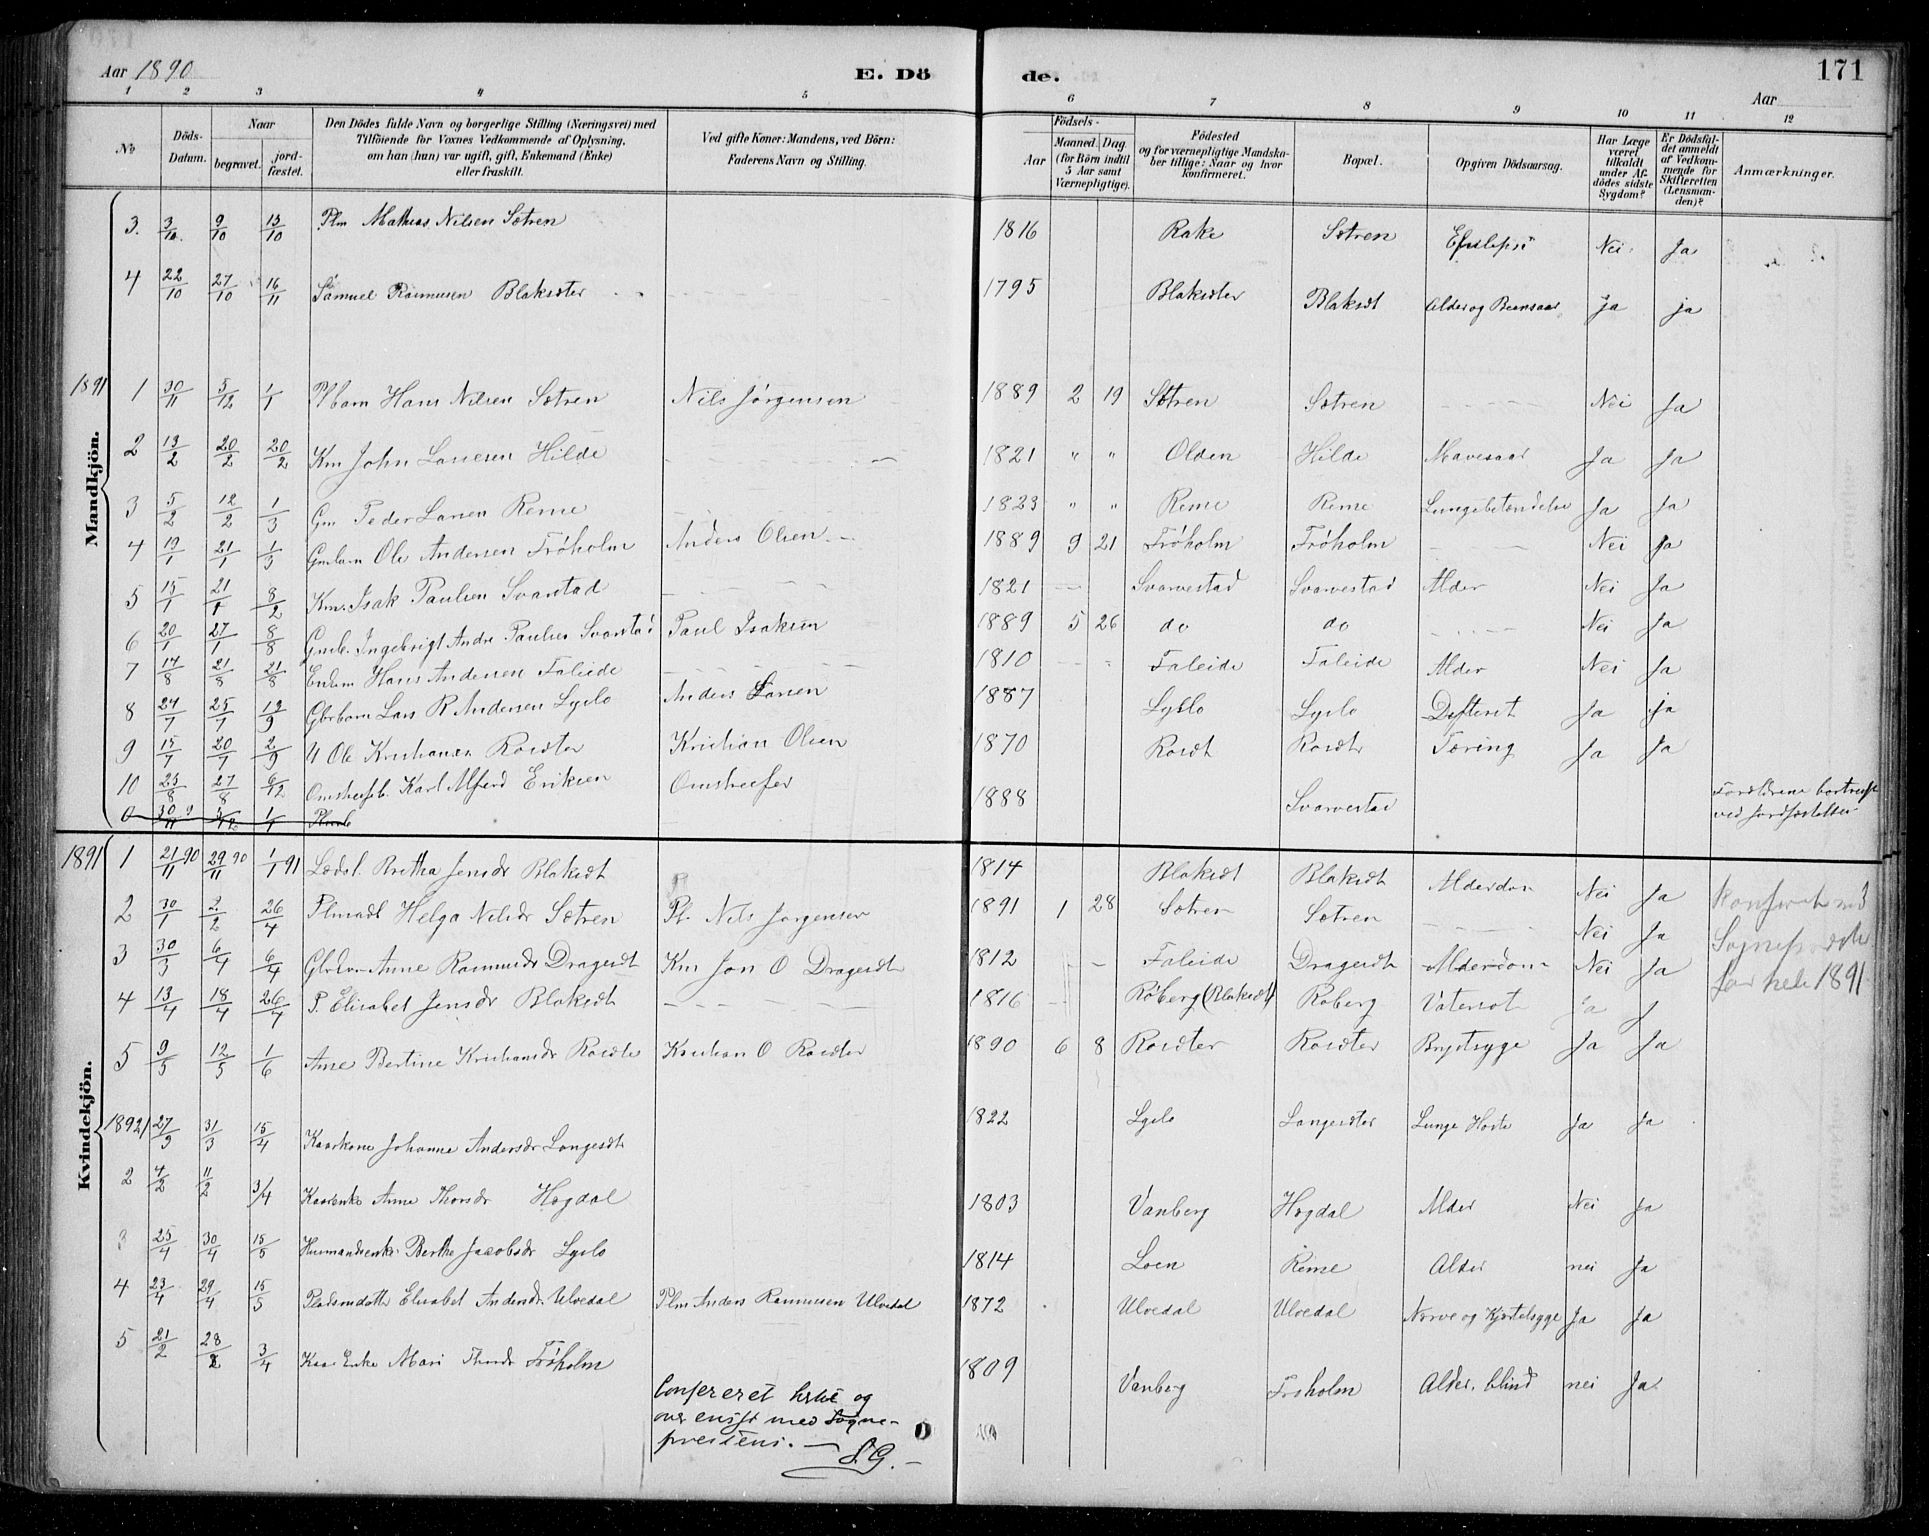 Aar 1890 E. Dö de. 171
Aar
1 2 3 4 5 6 7 8 9 10 11 12
№ Döds-Datum. Naar begravet. jordfæstet. Den Dödes fulde Navn og borgerlige Stilling (Næringsvei) med Tilföiende for Voxnes Vedkommende af Oplysning, om han (hun) var ugift, gift, Enkemand (Enke) eller fraskilt. Ved gifte Koner: Mandens, ved Börn: Faderens Navn og Stilling. Födsels- Aar Maaned. Dag (for Börn indtil 5 Aar samt Værnepligtige). Födested og for værnepligtige Mandskaber tillige: Naar og hvor konfirmeret. Bopæl. Opgiven Dödsaarsag. Har Læge været tilkaldt under Afdödes sidste Sygdom? Er Dödsfaldet anmeldt af Vedkommende for Skifteretten (Lensmanden)? Anmærkninger.
Mandkjön.
3. 3/10 9/10 15/10 Plm Mathias Nilsen Sætren 1816 Rake Sætren Epilepsi Nei Ja
4 22/10 27/10 16/11 Samuel Rasmusen Blaksæter 1795 Blaksæter Blaksæt Alder og Beensaar Ja ja
1891 1 30/11 5/12 1/1 Plbarn Hans Nilsen Sætren Nils Jørgensen 1889 2 19 Sætren Sætren Nei Ja
2 13/2 20/2 20/2 Km John Larsen Hilde 1821 " " Olden Hilde Mavesaar Ja Ja
3 5/2 12/2 1/3 Gm Peder Larsen Reme 1823 " " Reme Reme Lungebetændelse Ja Ja
4 19/1 21/1 1/3 Gmbarn Ole Andersen Frøholm Anders Olsen 1889 9 21 Frøholm Frøholm Nei Ja
5 15/1 21/1 8/2 Km. Isak Paulsen Svarstad 1821 Svarvestad Svarvestad Alder Nei Ja
6 20/1 27/1 8/8 Gmb. Ingebrigt Andr. Paulsen Svarstad Paul Isaksen 1889 5 26 do do Nei Ja
7 14/8 21/8 21/8 Enkem Hans Andersen Faleide 1810 Faleide Faleide Alder Nei Ja
8 24/7 25/7 19/9 Gbrbarn Lars R Andersen Lyslo Anders Larsen 1887 Lyslo Lyslo Defterit Ja ja
9 15/7 20/7 2/9 U Ole Kristiansen Rosæter Kristian Olsen 1870 Rosæt Rosæter Tæring Ja Ja
10 23/8 27/8 6/12 Omstreifb. Karl Alfred Eriksen Omstreifer 1888 Svarvestad Forældrene bortreist ved Jordfæstelsen
30/11 1/1 Plmb
Kvindekjön.
1891 1 21/11 90 29/11 90 1/1 91 Lædsl. Brettha Jensdr Blaksæt 1814 Blaksæt Blaksæt Alderdom Nei Ja
2 30/1 2/2 26/4 Plmadt Helga Nilsdr Sætren Pl. Nils Jørgensen 1891 1 28 Sætren Sætren Nei Ja Konfereret med
3 30/3 6/4 6/4 Anne Rasmusdr Dragesæt Km Jon O Dragesæt 1812 Faleide Dragesæt Alderdom Nei Ja Sogneprestens
4 13/4 18/4 26/4 P. Elisabet Jensdr Blaksæt 1816 Røberg (Blaksæt) Røberg Vatersot Ja J for hele 1891
5 9/5 12/5 1/6 Anne Bertine Kristiansdr Rosæte Kristian O Rosæter 1890 6 8 Rosæter Rosæter Brystsyge Ja Ja
1892 1 27/3 31/3 15/4 Kaarkone Johanne Andersdr Langesæt 1822 Lyslo Langesæter Lunge Hoste Ja Ja
2 4/2 11/2 3/4 Kaarenke Anne Thorsdr Hogdal 1803 Vanberg Hogdal Alder Nei Ja
3 25/4 30/4 15/5 Husmandsenke Berthe Jacobsdr Lyslo 1814 Loen Reme Alder nei Ja
4 23/4 29/4 15/5 Pladsmdatter Elisabet Andersdr. Ulvedal Plm Anders Rasmusen Ulvedal 1872 Ulvedal Ulvedal Nerve og Kjertelsyge Ja Ja
5 21/2 28/2 3/4 Kaar Enke Mari Thorsdr Frøholm 1809 Vanberg Froholm Alder, blind nei Ja
Confereret hertil og
overensst med Sogne-
prestens. — S.G. —